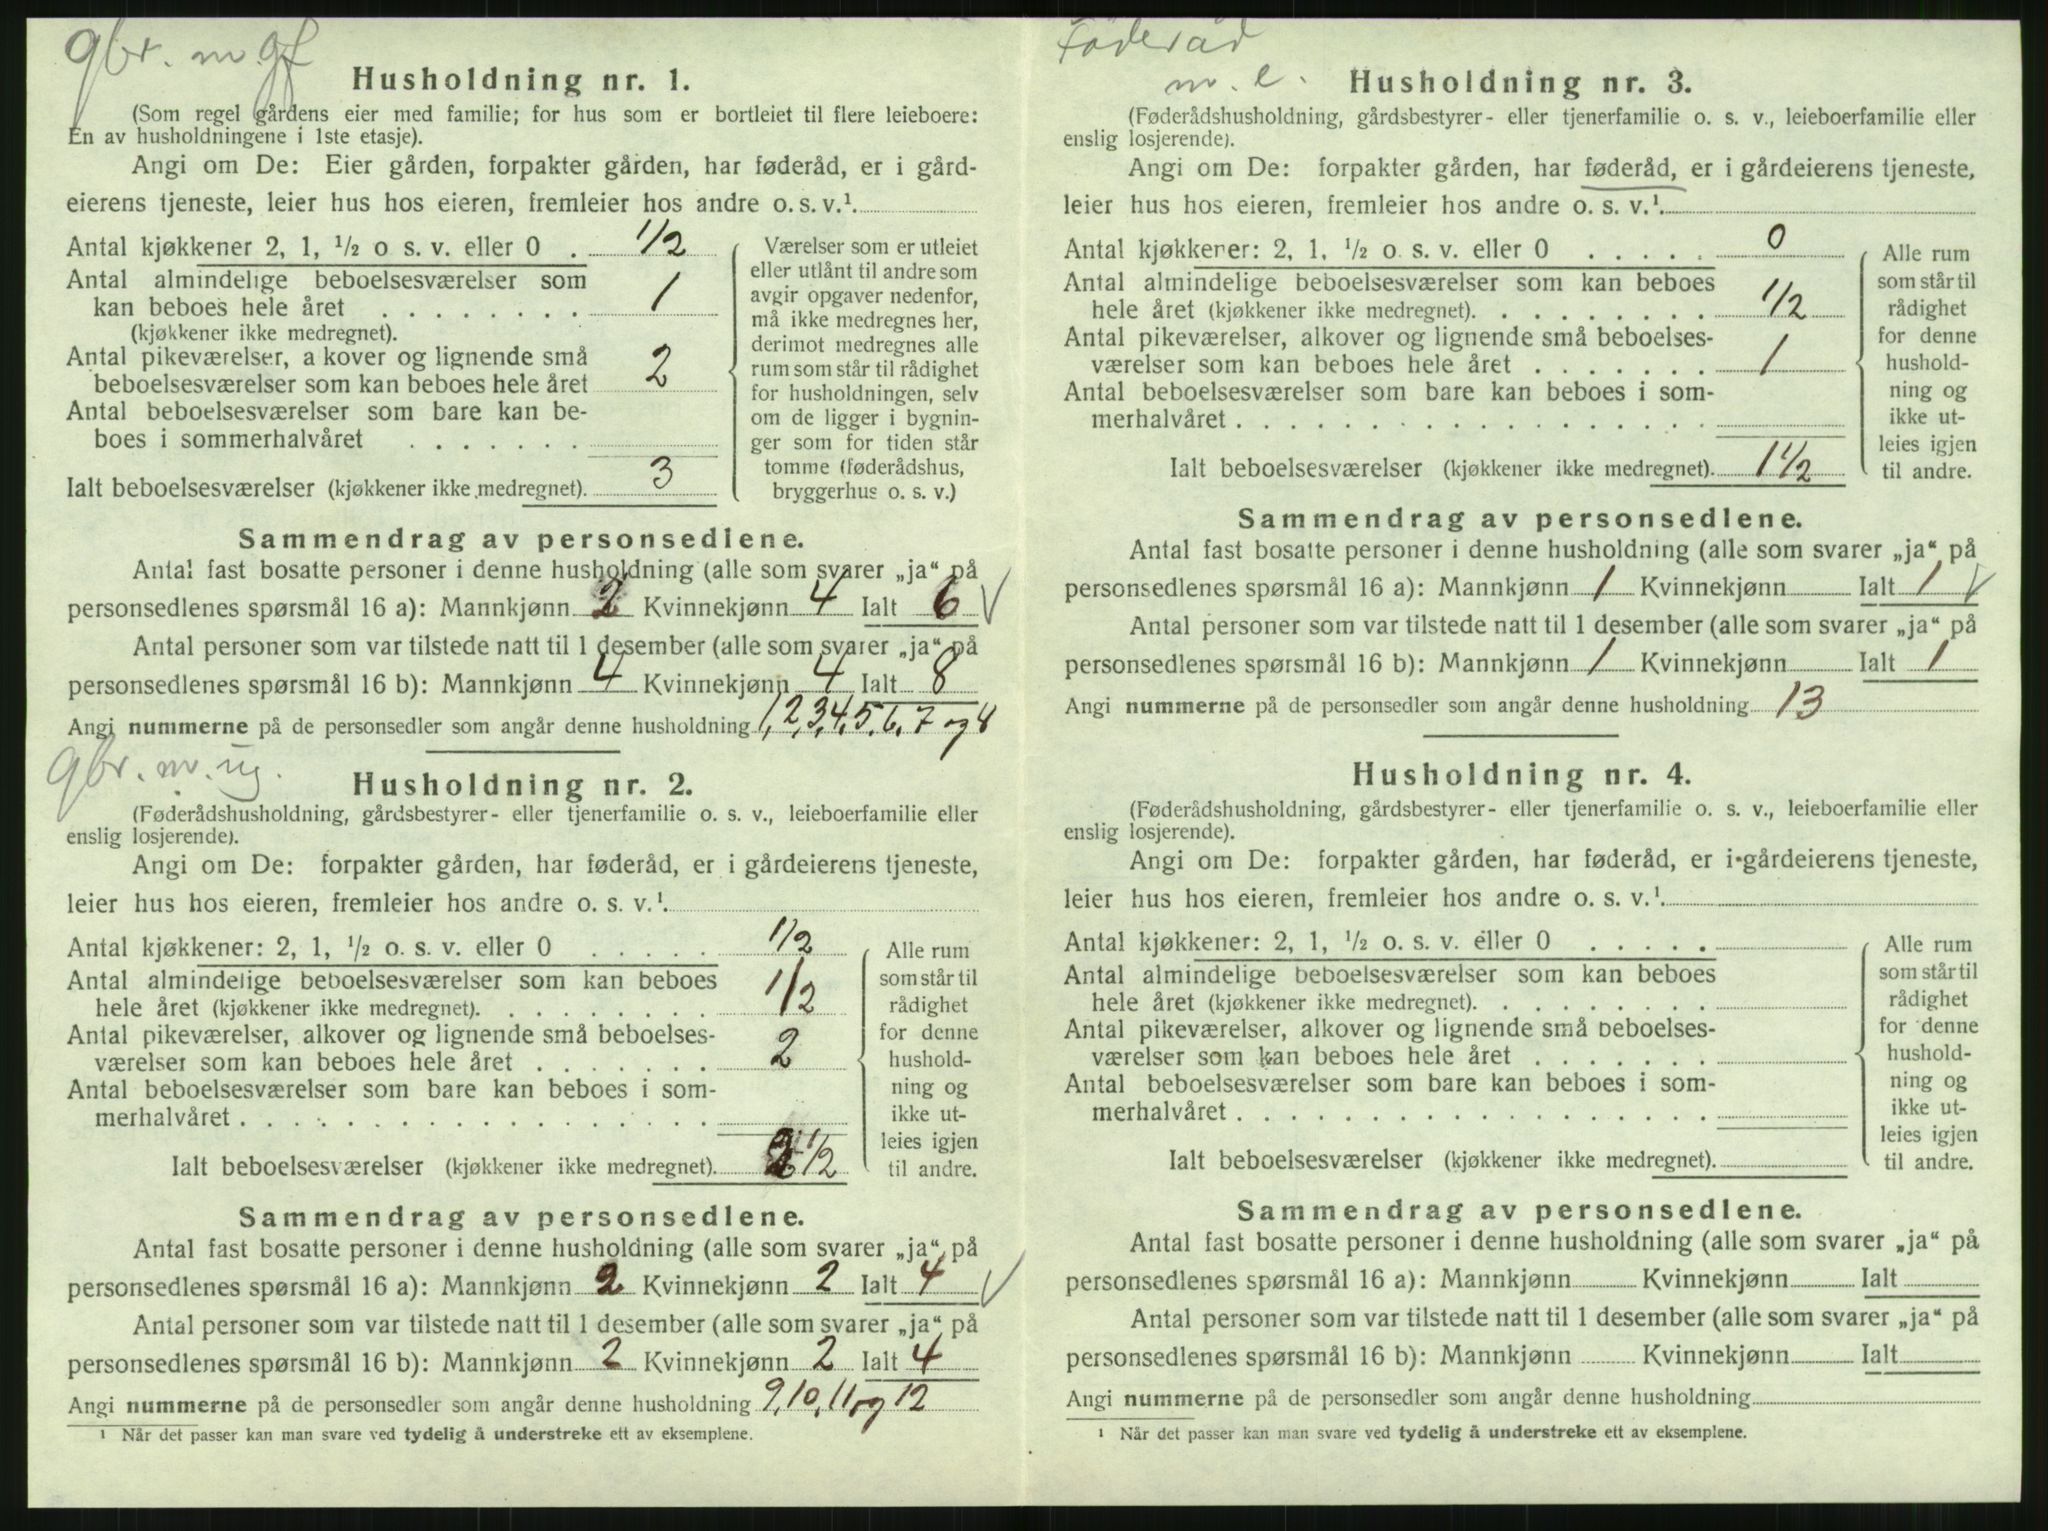 gbr. m. gf
Husholdning nr. 1.
(Som regel gårdens eier med familie; for hus som er bortleiet til flere leieboere:
En av husholdningene i 1ste etasje).
Angi om De: Eier gården, forpakter gården, har føderåd, er i gård-
eierens tjeneste, leier hus hos eieren, fremleier hos andre o. s. v.¹.
Antal kjøkkener 2, 1, ½ o s. v. eller 0 . 1/2
Antal almindelige beboelsesværelser som
kan beboes hele året . . . . . . . . 1
(kjøkkener ikke medregnet).
Antal pikeværelser, a kover og lignende små
beboelsesværelser som kan beboes hele året 2
Antal beboelsesværelser som bare kan be-
boes i sommerhalvåret . . . . . . .
Ialt beboelsesværelser (kjøkkener ikke medregnet). 3
Værelser som er utleiet
eller utlånt til andre som
avgir opgaver nedenfor,
må ikke medregnes her,
derimot medregnes alle
rum som står til rådighet
for husholdningen, selv
om de ligger i bygnin-
ger som for tiden står
tomme (føderådshus,
bryggerhus o. s. v.)
Sammendrag av personsedlene.
Antal fast bosatte personer i denne husholdning (alle som svarer „ja“ på
personsedlenes spørsmål 16 a): Mannkjønn 2 Kvinnekjønn 4 Ialt 6 √
Antal personer som var tilstede natt til 1 desember (alle som svarer „ja“ på
personsedlenes spørsmål 16 b): Mannkjønn 4 Kvinnekjønn 4 Ialt 8
Angi nummerne på de personsedler som angår denne husholdning 1, 2, 3, 4, 5, 6, 7 og 8
gbr. m. ug.
Husholdning nr. 2.
(Føderådshusholdning, gårdsbestyrer- eller tjenerfamilie o. s. v., leieboerfamilie eller
enslig losjerende).
Angi om De: forpakter gården, har føderåd, er i gårdeierens tjeneste,
leier hus hos eieren, fremleier hos andre o. s. v.¹.
Antal kjøkkener: 2, 1, ½ o. s. v. eller 0 . . . . . 1/2
Antal almindelige beboelsesværelser som kan beboes
hele året (kjøkkener ikke medregnet). . . . . . . . . 1/2
Antal pikeværelser, alkover og lignende små beboelses-
værelser som kan beboes hele året . . . . . . . 2
Antal beboelsesværelser som bare kan beboes i som-
merhalvåret . . . . . . . . . . . . . . . . . .
Ialt beboelsesværelser (kjøkkener ikke medregnet). 2 1/2
Alle rum
som står til
rådighet
for denne
hushold-
ning og
ikke ut-
leies igjen
til andre.
Sammendrag av personsedlene.
Antal fast bosatte personer i denne husholdning (alle som svarer „ja“ på
personsedlenes spørsmål 16 a): Mannkjønn 2 Kvinnekjønn 2 Ialt 4 √
Antal personer som var tilstede natt til 1 desember (alle som svarer „ja“ på
personsedlenes spørsmål 16 b): Mannkjønn 2 Kvinnekjønn 2 Ialt 4
Angi nummerne på de personsedler som angår denne husholdning 9, 10, 11 og 12
¹ Når det passer kan man svare ved tydelig å understreke ett av eksemplene.
Føderåd
m. l.
Husholdning nr. 3.
(Føderådshusholdning, gårdsbestyrer- eller tjenerfamilie o. s. v., leieboerfamilie eller
enslig losjerende).
Angi om De: forpakter gården, har føderåd, er i gårdeierens tjeneste,
leier hus hos eieren, fremleier hos andre o. s. v.¹.
Antal kjøkkener: 2, 1, ½ o. s. v. eller 0 . . . . . 0
Antal almindelige beboelsesværelser som kan beboes
hele året (kjøkkener ikke medregnet). . . . . . . . . 1/2
Antal pikeværelser, alkover og lignende små beboelses-
værelser som kan beboes hele året . . . . . . . 1
Antal beboelsesværelser som bare kan beboes i som-
merhalvåret . . . . . . . . . . . . . . . . . .
Ialt beboelsesværelser (kjøkkener ikke medregnet). 1 1/2
Alle rum
som står til
rådighet
for denne
hushold-
ning og
ikke ut-
leies igjen
til andre.
Sammendrag av personsedlene.
Antal fast bosatte personer i denne husholdning (alle som svarer „ja“ på
personsedlenes spørsmål 16 a): Mannkjønn 1 Kvinnekjønn Ialt 1 √
Antal personer som var tilstede natt til 1 desember (alle som svarer „ja“ på
personsedlenes spørsmål 16 b): Mannkjønn 1 Kvinnekjønn Ialt 1
Angi nummerne på de personsedler som angår denne husholdning 13
Husholdning nr. 4.
(Føderådshusholdning, gårdsbestyrer- eller tjenerfamilie o. s. v., leieboerfamilie eller
enslig losjerende).
Angi om De: forpakter gården, har føderåd, er i gårdeierens tjeneste,
leier hus hos eieren, fremleier hos andre o. s. v.¹.
Antal kjøkkener: 2, 1, ½ o. s. v. eller 0 . . . . .
Antal almindelige beboelsesværelser som kan beboes
hele året (kjøkkener ikke medregnet). . . . . . . . .
Antal pikeværelser, alkover og lignende små beboelses-
værelser som kan beboes hele året . . . . . . .
Antal beboelsesværelser som bare kan beboes i som-
merhalvåret . . . . . . . . . . . . . . . . . .
Ialt beboelsesværelser (kjøkkener ikke medregnet).
Alle rum
som står til
rådighet
for denne
hushold-
ning og
ikke ut-
leies igjen
til andre.
Sammendrag av personsedlene.
Antal fast bosatte personer i denne husholdning (alle som svarer „ja“ på
personsedlenes spørsmål 16 a): Mannkjønn Kvinnekjønn Ialt
Antal personer som var tilstede natt til 1 desember (alle som svarer „ja“ på
personsedlenes spørsmål 16 b): Mannkjønn Kvinnekjønn Ialt
Angi nummerne på de personsedler som angår denne husholdning
¹ Når det passer kan man svare ved tydelig å understreke ett av eksemplene.